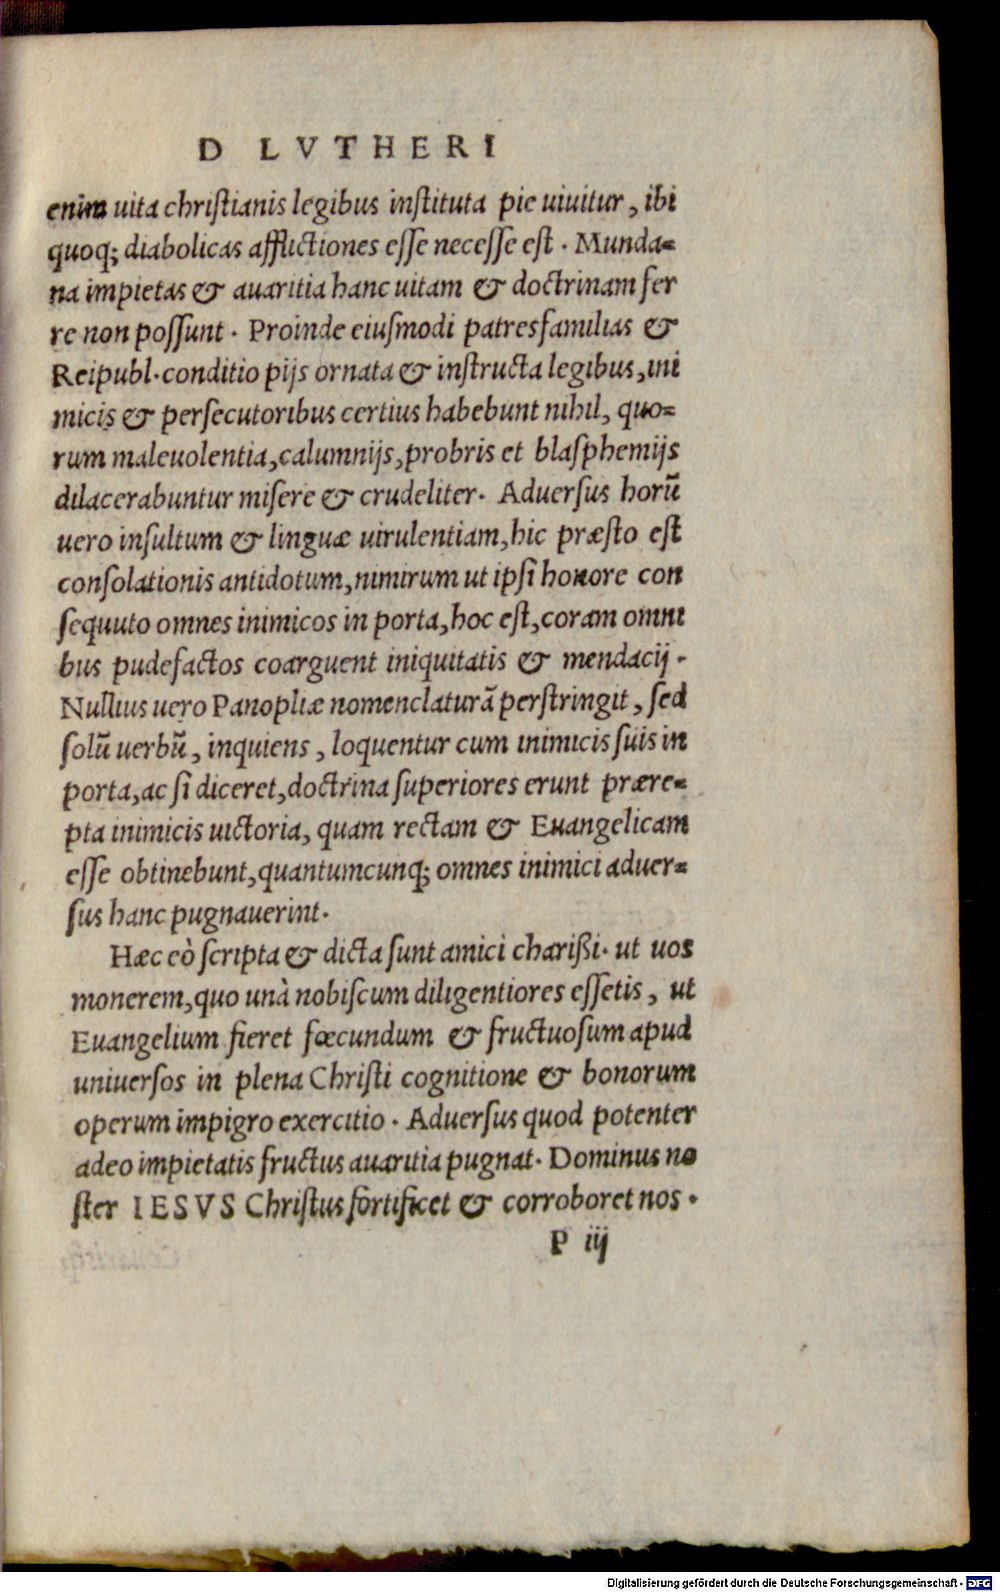 D LVTHERI
enim uita christianis legibus instituta pie uiuitur, ibi
quoq; diabolicas afflictiones esse necesse est. Munda=
na impietas & auaritia hanc uitam & doctrinam fer
re non possunt. Proinde eiusmodi patresfamilias &
Reipubl. conditio pijs ornata & instructa legibus, ini
micis & persecutoribus certius habebunt nihil, quo=
rum maleuolentia, calumnijs, probris et blasphemijs
dilacerabuntur misere & crudeliter. Aduersus horũ
uero insultum & linguæ uirulentiam, hic præsto est
consolationis antidotum, nimirum ut ipsi honore con
sequuto omnes inimicos in porta, hoc est, coram omni
bus pudefactos coarguent iniquitatis & mendacij.
Nullius uero Panopliæ nomenclaturã perstringit, sed
solũ uerbũ, inquiens, loquentur cum inimicis suis in
porta, ac si diceret, doctrina superiores erunt prære=
pta inimicis uictoria, quam rectam & Euangelicam
esse obtinebunt, quantumcunq; omnes inimici aduer=
sus hanc pugnauerint.
Hæc eò scripta & dicta sunt amici charißi. ut uos
monerem, quo unà nobiscum diligentiores essetis, ut
Euangelium fieret fœcundum & fructuosum apud
uniuersos in plena Christi cognitione & bonorum
operum impigro exercitio. Aduersus quod potenter
adeo impietatis fructus auaritia pugnat. Dominus no
ster IESVS Christus fortificet & corroboret nos.
P iij
Digitalisierung gefördert durch die Deutsche Forschungsgemeinschaft - DFG